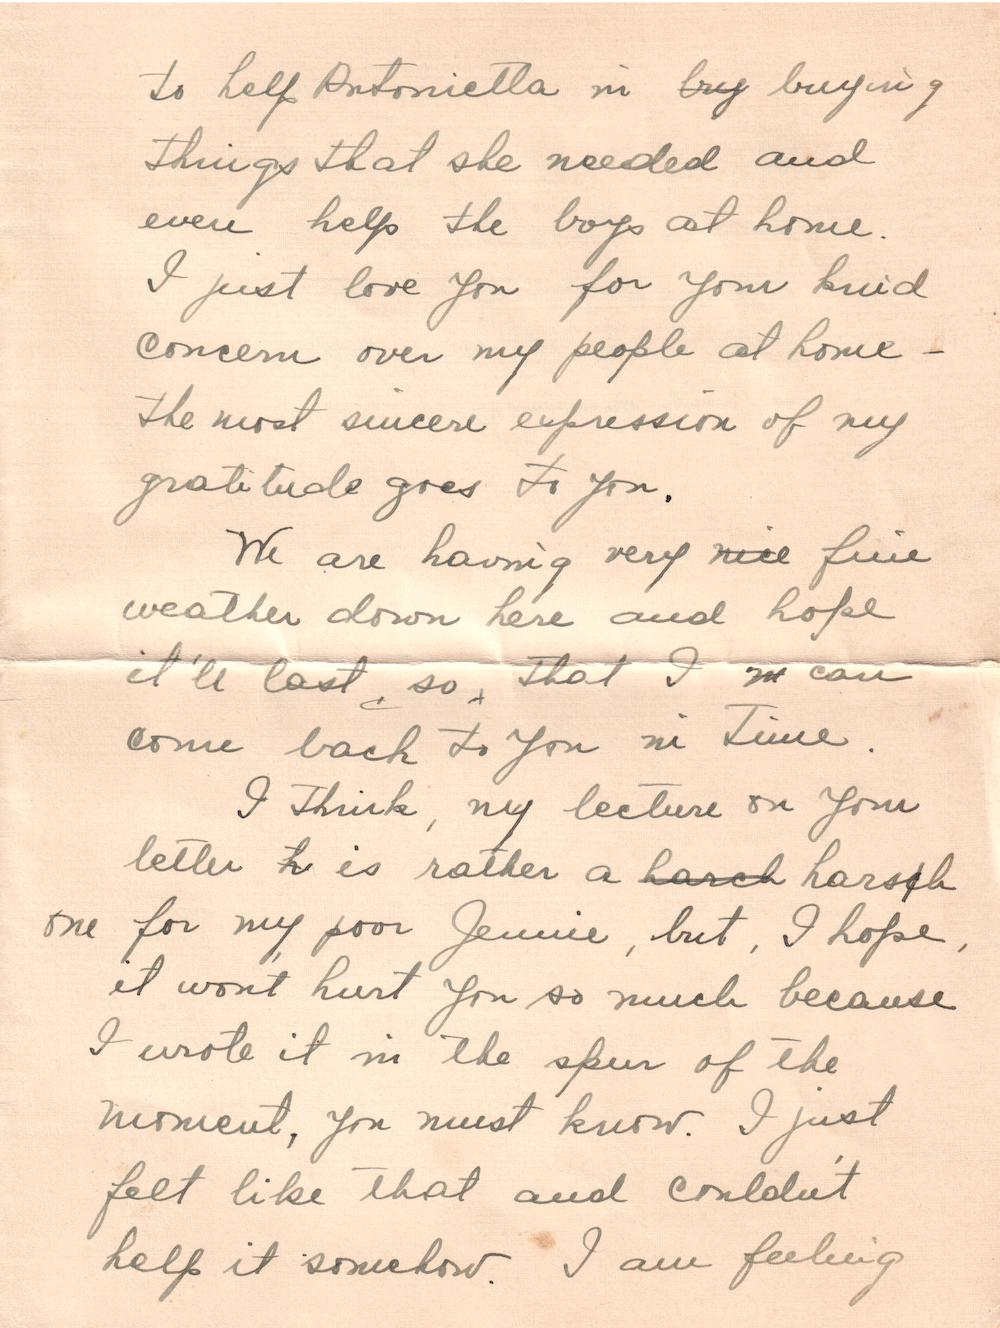 to help Antonietta in buy buying
things that she needed and
even help the boys at home.
I just love you for your kind
concern over my people at home -
the most sincere expression of my
gratitude goes to you.
We are having very nice fine
weather down here and hope
it'll last, so, that I can
come back to you in time.
I think, my lecture on your
letter is rather a harch harsh
one for my poor Jennie, but, I hope,
it won't hurt you so much because
I wrote it in the spur of the
moment, you must know. I just
felt like that and couldn't
help it somehow. I am feeling